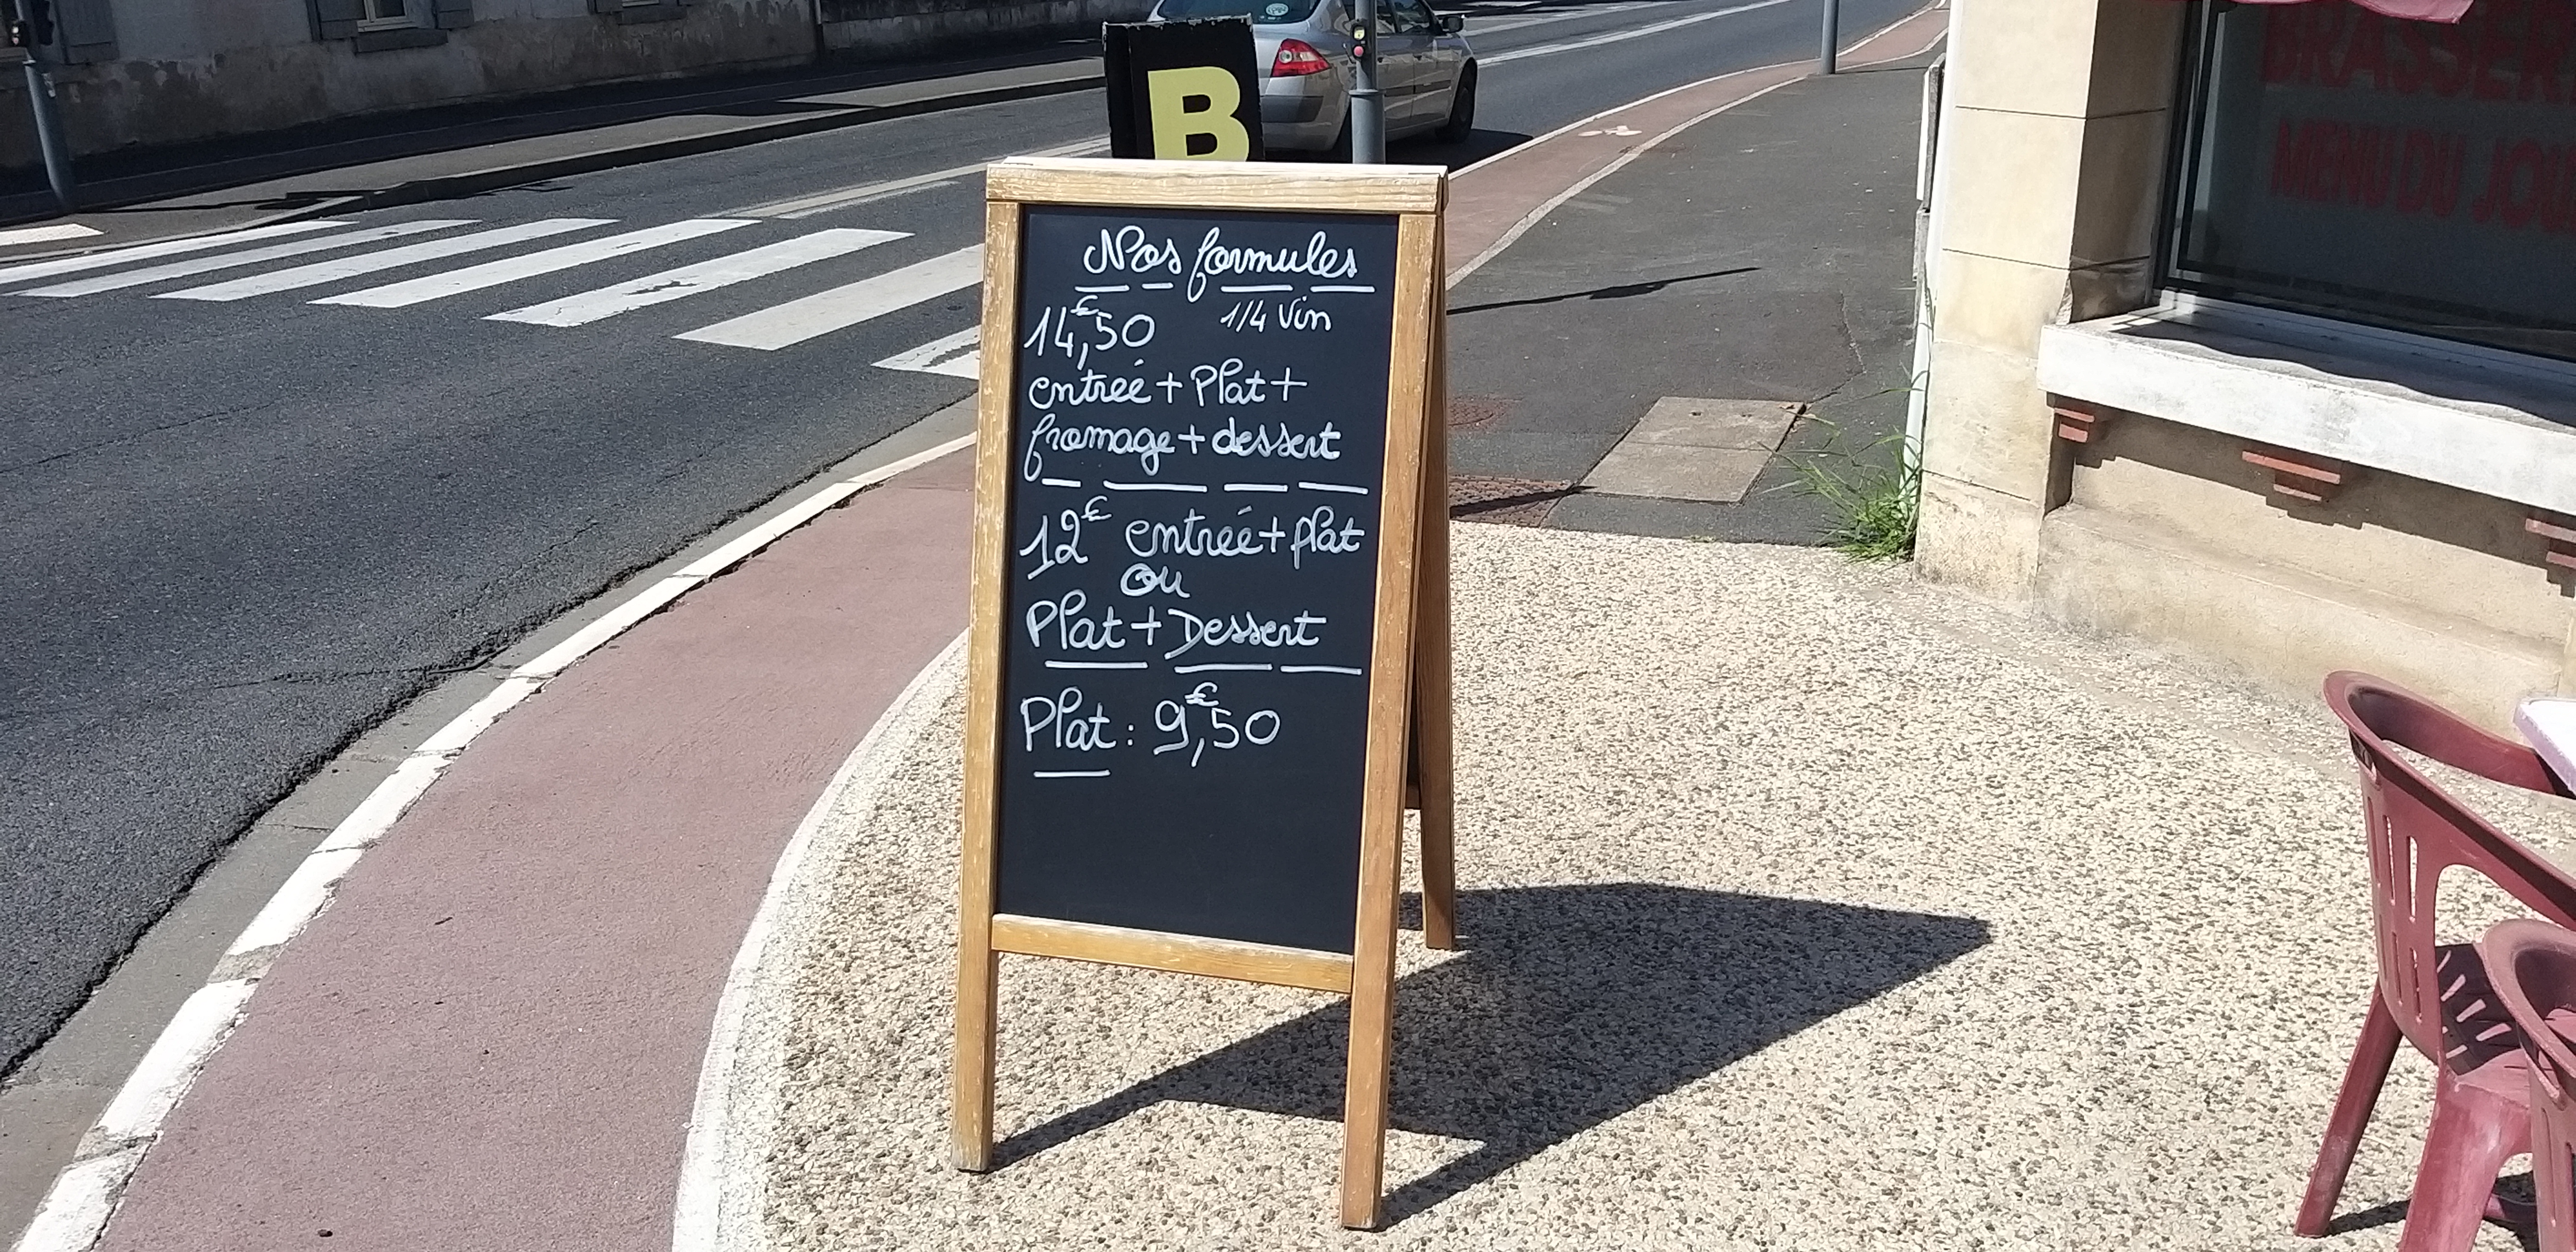 B
Nos formules
14,€50 1/4 Vin
entrée + Plat +
fromage + dessert
12€ entrée + plat
ou
Plat + Dessert
Plat : 9,€50
MENU DU